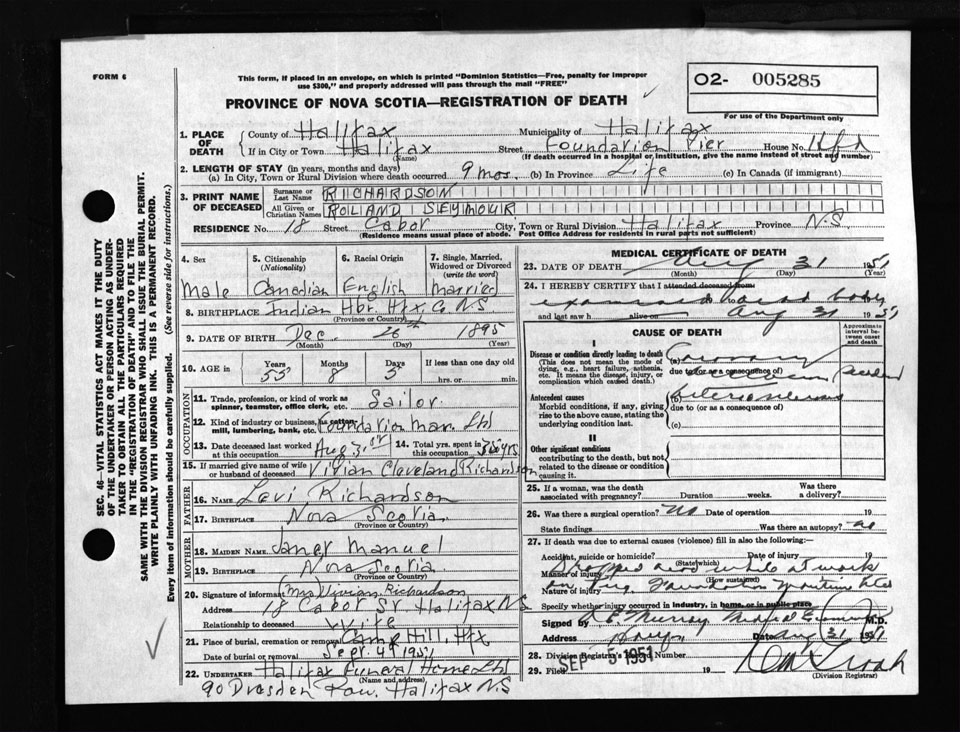 FORM 6
This form, if placed in an envelope, on which is printed "Dominion Statistics—Free, penalty for improper
use $300," and properly addressed will pass through the mail "FREE"
O2- 005285
For use of the Department only
PROVINCE OF NOVA SCOTIA—REGISTRATION OF DEATH
SEC. 46—VITAL STATISTICS ACT MAKES IT THE DUTY
OF THE UNDERTAKER OR PERSON ACTING AS UNDER-
TAKER TO OBTAIN ALL THE PARTICULARS REQUIRED
IN THE "REGISTRATION OF DEATH" AND TO FILE THE
SAME WITH THE DIVISION REGISTRAR WHO SHALL ISSUE THE BURIAL PERMIT.
WRITE PLAINLY WITH UNFADING INK. THIS IS A PERMANENT RECORD.
Every item of information should be carefully supplied. (See reverse side for instructions.)
1. PLACE OF DEATH
County of Halifax Municipality of Halifax
If in City or Town Halifax Street Foundation Pier House No. Hfx
(Name) (If death occurred in a hospital or institution, give the name instead of street and number)
2. LENGTH OF STAY (in years, months and days)
(a) In City, Town or Rural Division where death occurred 9 mos. (b) In Province Life (c) In Canada (if immigrant)
3. PRINT NAME OF DECEASED
Surname or Last Name RICHARDSON
All Given or Christian Names ROLAND SEYMOUR
RESIDENCE No. 18 Street Cabot City, Town or Rural Division Halifax Province N.S.
(Residence means usual place of abode. Post Office Address for residents in rural parts not sufficient)
4. Sex
Male
5. Citizenship (Nationality)
Canadian
6. Racial Origin
English
7. Single, Married, Widowed or Divorced (write the word)
Married
8. BIRTHPLACE Indian Hbr. Hfx. Co N.S
(Province or Country)
9. DATE OF BIRTH Dec. 26th 1895
(Month) (Day) (Year)
10. AGE in Years Months Days If less than one day old
55 8 5 hrs. or min.
OCCUPATION
11. Trade, profession, or kind of work as spinner, teamster, office clerk, etc. Sailor
12. Kind of industry or business, as cotton mill, lumbering, bank, etc. Foundation Mar. Ltd
13. Date deceased last worked at this occupation Aug 31st
14. Total yrs. spent in this occupation 35 yrs.
15. If married give name of wife or husband of deceased Vivian Cleveland Richardson
FATHER
16. NAME Levi Richardson
17. BIRTHPLACE Nova Scotia
(Province or Country)
MOTHER
18. MAIDEN NAME Janet Manuel
19. BIRTHPLACE Nova Scotia
(Province or Country)
20. Signature of informant (Mrs) Vivian Richardson
Address 18 Cabot St. Halifax N.S
Relationship to deceased Wife
21. Place of burial, cremation or removal Camp Hill, Hfx
Date of burial or removal Sept. 4th 1951
22. UNDERTAKER Halifax Funeral Home Ltd
(Name and address)
90 Dresden Row. Halifax N.S
MEDICAL CERTIFICATE OF DEATH
23. DATE OF DEATH Aug 31 1951
(Month) (Day) (Year)
24. I HEREBY CERTIFY that I attended deceased from
examined dead body
and last saw h alive on Aug 31 1951
CAUSE OF DEATH
Approximate interval between onset and death
I
Disease or condition directly leading to death
(This does not mean the mode of dying, e.g., heart failure, asthenia, etc. It means the disease, injury, or complication which caused death.)
(a) Coronary
due to (or as a consequence of)
Antecedent causes
Morbid conditions, if any, giving rise to the above cause, stating the underlying condition last.
(b)
due to (or as a consequence of)
(c)
II
Other significant conditions
contributing to the death, but not related to the disease or condition causing it.
25. If a woman, was the death associated with pregnancy? Duration weeks. Was there a delivery?
26. Was there a surgical operation? No Date of operation 19
State findings Was there an autopsy? no
27. If death was due to external causes (violence) fill in also the following:
Accident, suicide or homicide? Date of injury 19
(State which)
Manner of injury Dropped dead while at work
(How sustained)
Nature of injury on tug. Foundation Maritime Ltd
Specify whether injury occurred in industry, in home, or in public place
Signed by Murray Medical Examiner M.D.
Address Date Aug 31 1951
28. Division Registrar's Record Number
29. Filed SEP 5 1951 19
(Division Registrar)